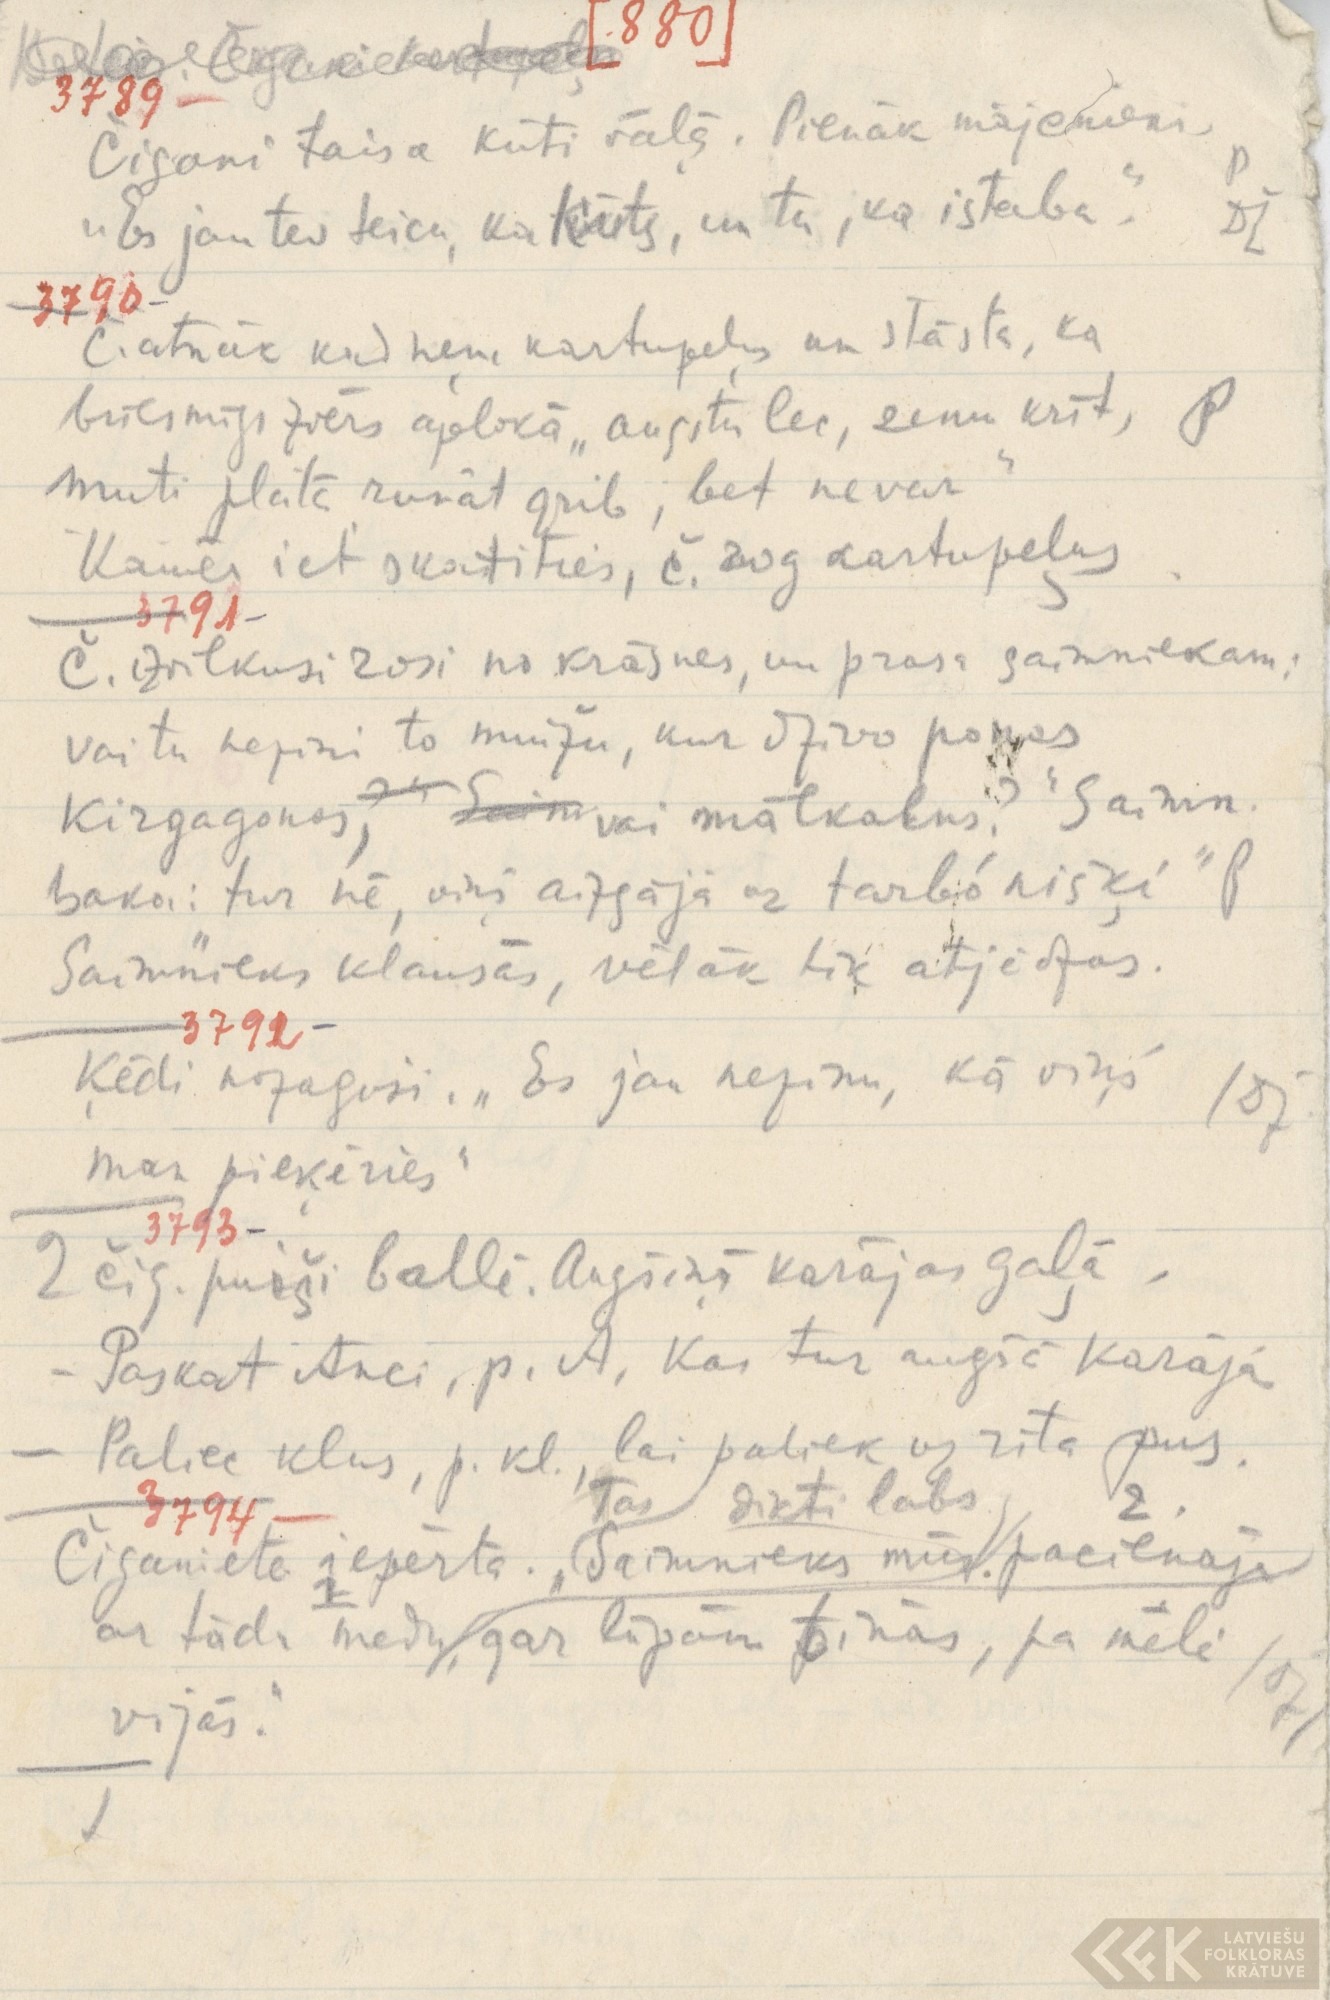 [880]
3789 —
Čigani taisa kūti vaļā. Pienāk mājenieki
"Es jau tev teicu, ka kūts, un tu, ka istaba".
P
Dž
3790 —
Č. atnāk kad ņem kartupeļus un stāsta, ka
briesmīgs zvērs aplokā "augstu lec, zemu krīt,
P
muti plāta runāt grib, bet nevar"
Kamēr iet skatīties, č. zog kartupeļus.
3791 —
Č. izvilkusi zosi no krāsnes, un prasa saimniekam:
vai tu nezini to muižu, kur dzīvo ponos
Kirgagonos, vai mālkalns?" Saimn.
saka: tur nē, viņš aizgājā uz tarbóniški" P
Saimnieks klausās, vēlāk tik atjēdzas.
3792 —
Ķēdi nozagusi. "Es jau nezinu, kā viņš
/Dž.
man pieķēries"
3793 —
2 čig. puiši ballē. Augšiņā karājas gaļa.
- Paskat Anci, p. A, kas tur augšā karāja
— Paliec klus, p. kl., lai paliek uz rīta pus.
3794 —
Tas dikti labs 2.
Čiganiete iepērta. "Saimnieks mūs. pacienāja
ar tādu medu, gar lūpām tinās, pa mēli
/Dž/
vijās."
LATVIEŠU
FOLKLORAS
KRĀTUVE